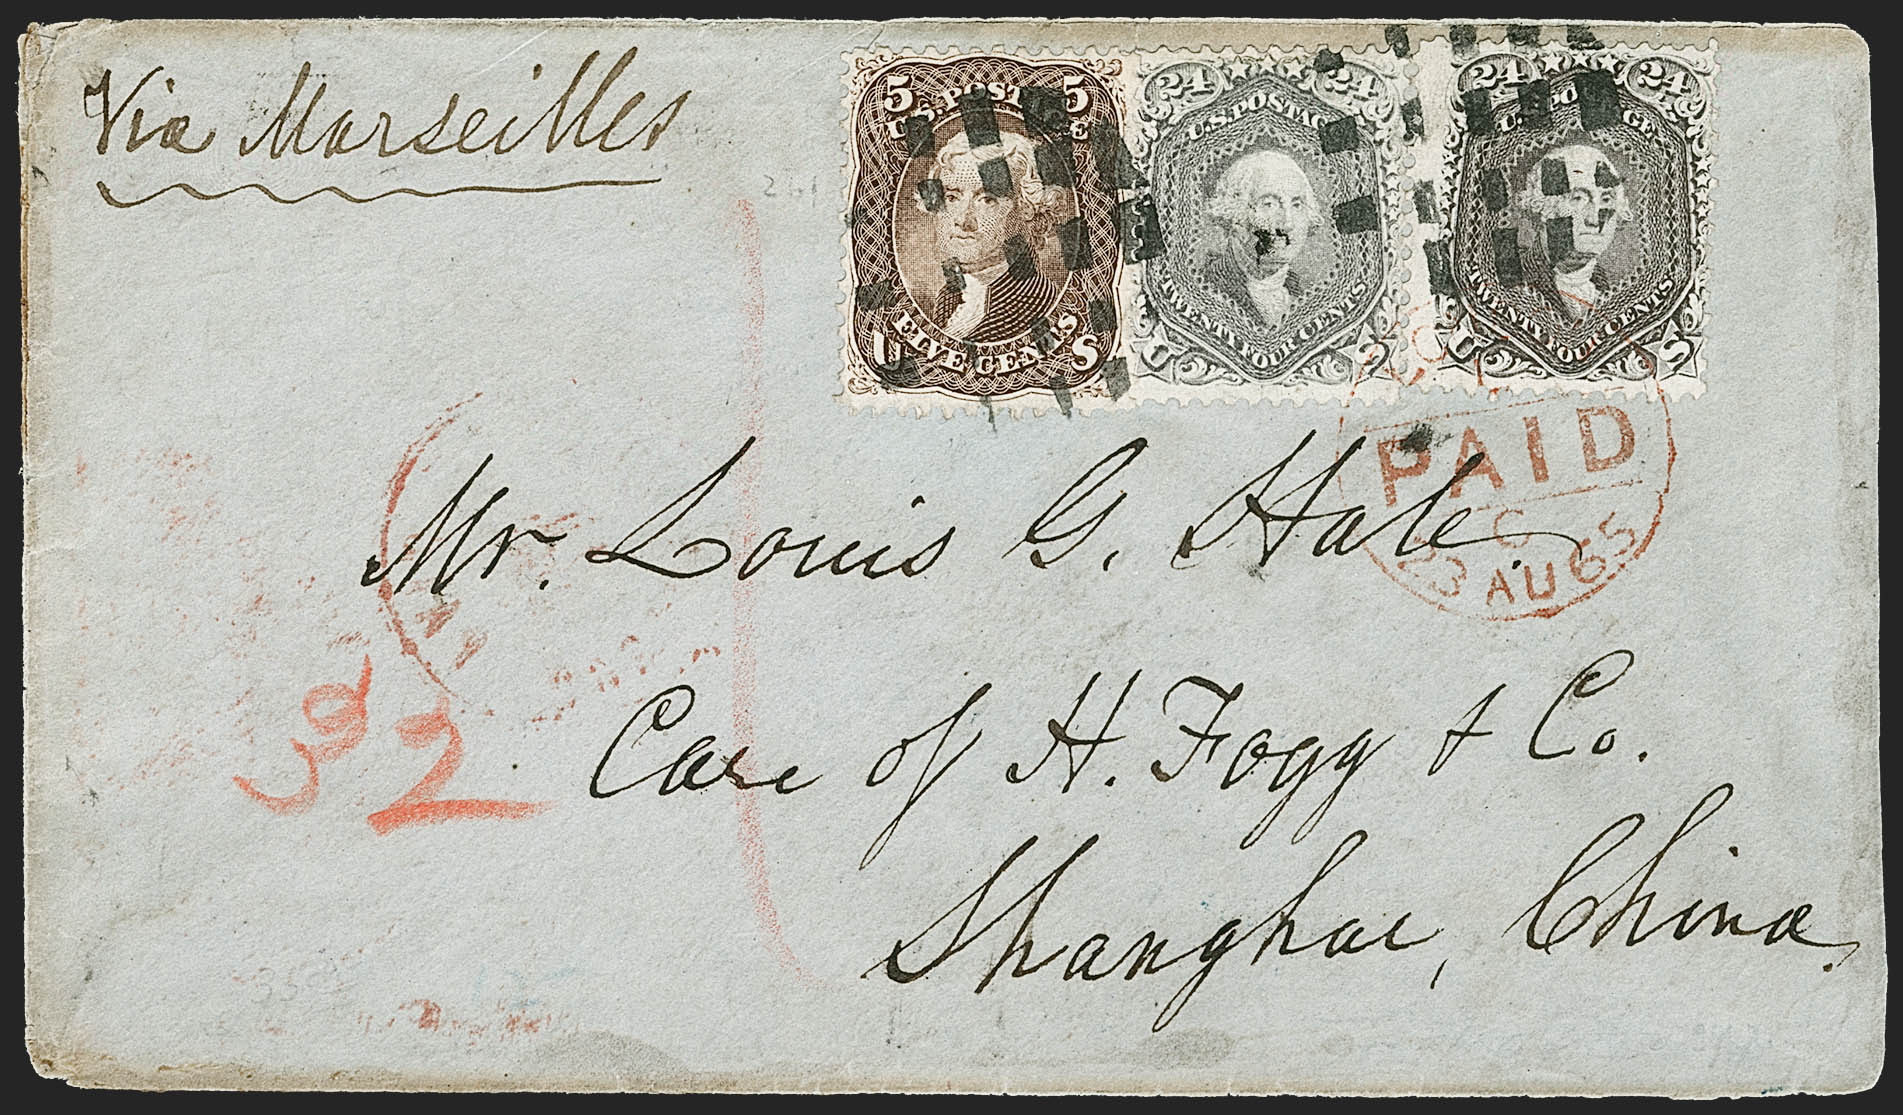 Via Marseilles
5 5
U.S. POSTAGE
FIVE CENTS
U S
24 24
U.S. POSTAGE
TWENTY FOUR CENTS
U S
24 24
U.S. POSTAGE
TWENTY FOUR CENTS
U S
PAID
C
23 AU 65
Mr. Louis G. Hale.
Care of H. Fogg & Co.
Shanghae, China.